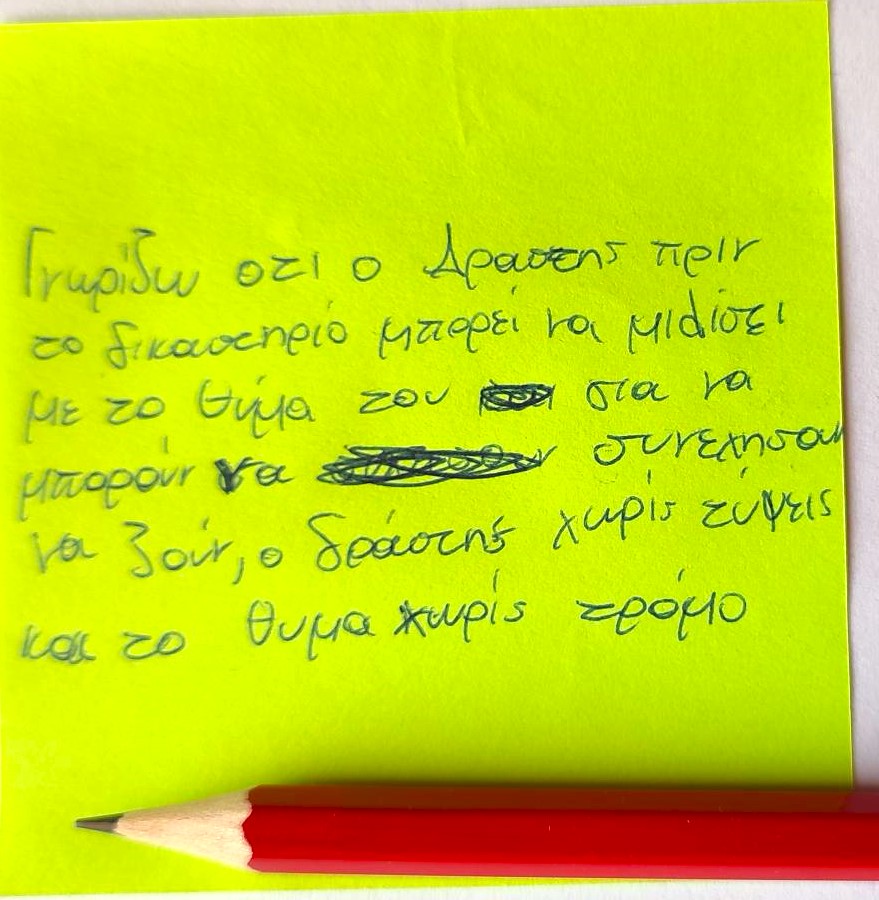 Γνωρίζω οτι ο Δραστης πριν
το δικαστηριο μπορεί να μιλίσει
με το θύμα του για να
μπορούν να συνεχησουν
να ζούν, ο δράστης χωρίς τύψεις
και το θυμα χωρίς τρόμο